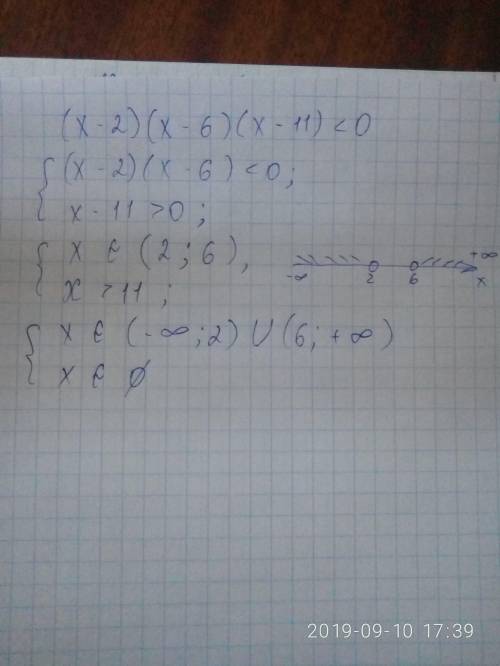 (x-2)(x-6)(x-11)<0
{ (x-2)(x-6)<0;
x-11>0;
{ x ∈ (2;6),
x>11;
-∞ 2 6 +∞ x
{ x ∈ (-∞;2) ∪ (6;+∞)
x ∈ ∅
2019-09-10 17:39